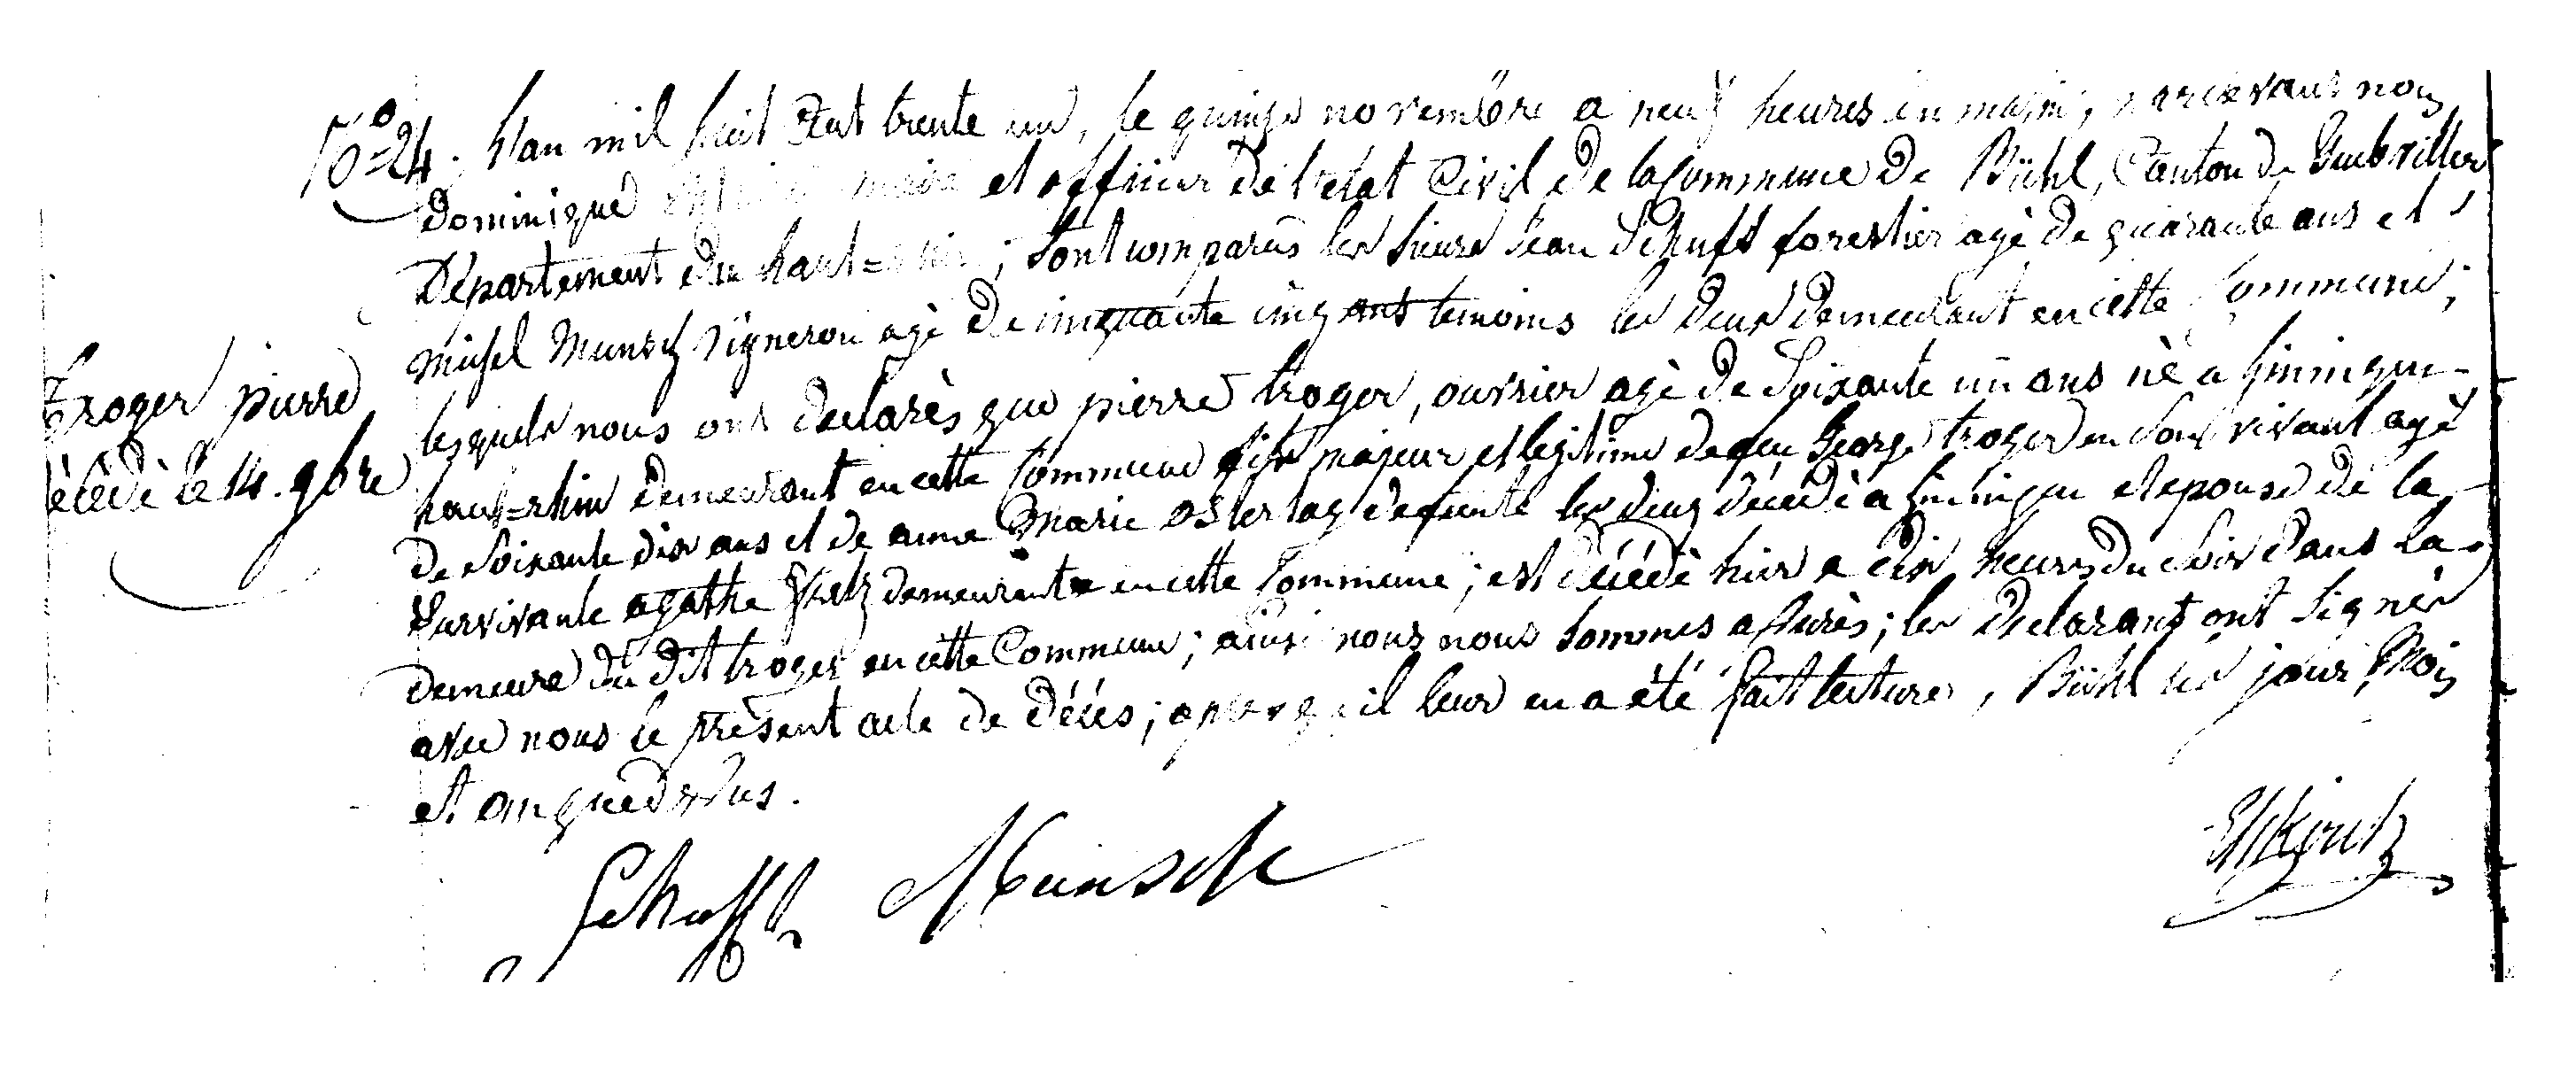 N° 24. L'an mil huit cent trente un, le quinze novembre a neuf heures du matin, pardevant nous
Dominique maire et officier de l'etat Civil de la Commune de Bühl, Canton de Guebviller
Département du haut=rhin; Sont comparus les Sieurs Jean Schufft forestier agè de quarante ans et
michel Munsch Vigneron agè de cinquante cinq ans temoins les deux demeurant en cette Commune;
Troger pierre
lesquels nous ont declarès que pierre troger, ouvrier agè de Soixante un ans nè a hiningue
décèdè le 14. 9bre
haut=rhin demeurant en cette Commune fils majeur et legitime de feu George troger en son vivant agè
de Soixante dix ans et de anne Marie Ostertag defunte les deux décédè a hiningue et epoux de la
Survivante agathe demeurante en cette Commune; est décédè hier a dix heures du Soir dans la
demeure du dit troger en cette Commune; ainsi nous nous Sommes assurès; les declarant ont Signès
avec nous le présent acte de décés; après qu'il leur en a été fait lecture, Bühl les jour, Mois
et an que dessus.
Schufft Munsch